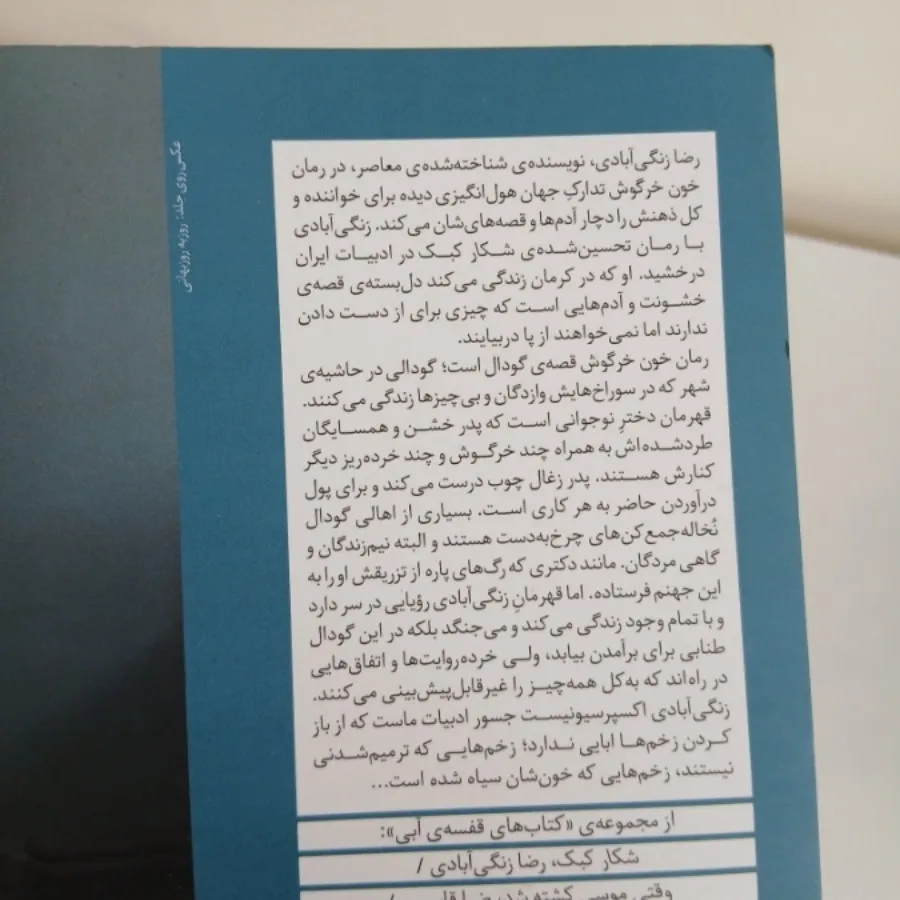 رضا زنگی‌آبادی، نویسنده‌ی شناخته‌شده‌ی معاصر، در رمان
خون خرگوش تدارکِ جهان هول‌انگیزی دیده برای خواننده و
کل ذهنش را دچار آدم‌ها و قصه‌های‌شان می‌کند. زنگی‌آبادی
با رمان تحسین‌شده‌ی شکار کبک در ادبیات ایران
درخشید. او که در کرمان زندگی می‌کند دل‌بسته‌ی قصه‌ی
خشونت و آدم‌هایی است که چیزی برای از دست دادن
ندارند اما نمی‌خواهند از پا دربیایند.
رمان خون خرگوش قصه‌ی گودال است؛ گودالی در حاشیه‌ی
شهر که در سوراخ‌هایش وازدگان و بی‌چیزها زندگی می‌کنند.
قهرمان دخترِ نوجوانی است که پدر خشن و همسایگان
طردشده‌اش به همراه چند خرگوش و چند خرده‌ریز دیگر
کنارش هستند. پدر زغال چوب درست می‌کند و برای پول
درآوردن حاضر به هر کاری است. بسیاری از اهالی گودال
نُخاله‌جمع‌کن‌های چرخ‌به‌دست هستند و البته نیم‌زندگان و
گاهی مردگان. مانند دکتری که رگ‌های پاره از تزریقش او را به
این جهنم فرستاده. اما قهرمانِ زنگی‌آبادی رؤیایی در سر دارد
و با تمام وجود زندگی می‌کند و می‌جنگد بلکه در این گودال
طنابی برای برآمدن بیابد، ولی خرده‌روایت‌ها و اتفاق‌هایی
در راه‌اند که به‌کل همه‌چیز را غیرقابل‌پیش‌بینی می‌کنند.
زنگی‌آبادی اکسپرسیونیست جسور ادبیات ماست که از باز
کردن زخم‌ها ابایی ندارد؛ زخم‌هایی که ترمیم‌شدنی
نیستند، زخم‌هایی که خون‌شان سیاه شده است...
از مجموعه‌ی «کتاب‌های قفسه‌ی آبی»:
شکار کبک، رضا زنگی‌آبادی /
وقتی موسی کشته شد، رضا
عکس روی جلد: روزبه روزبهانی